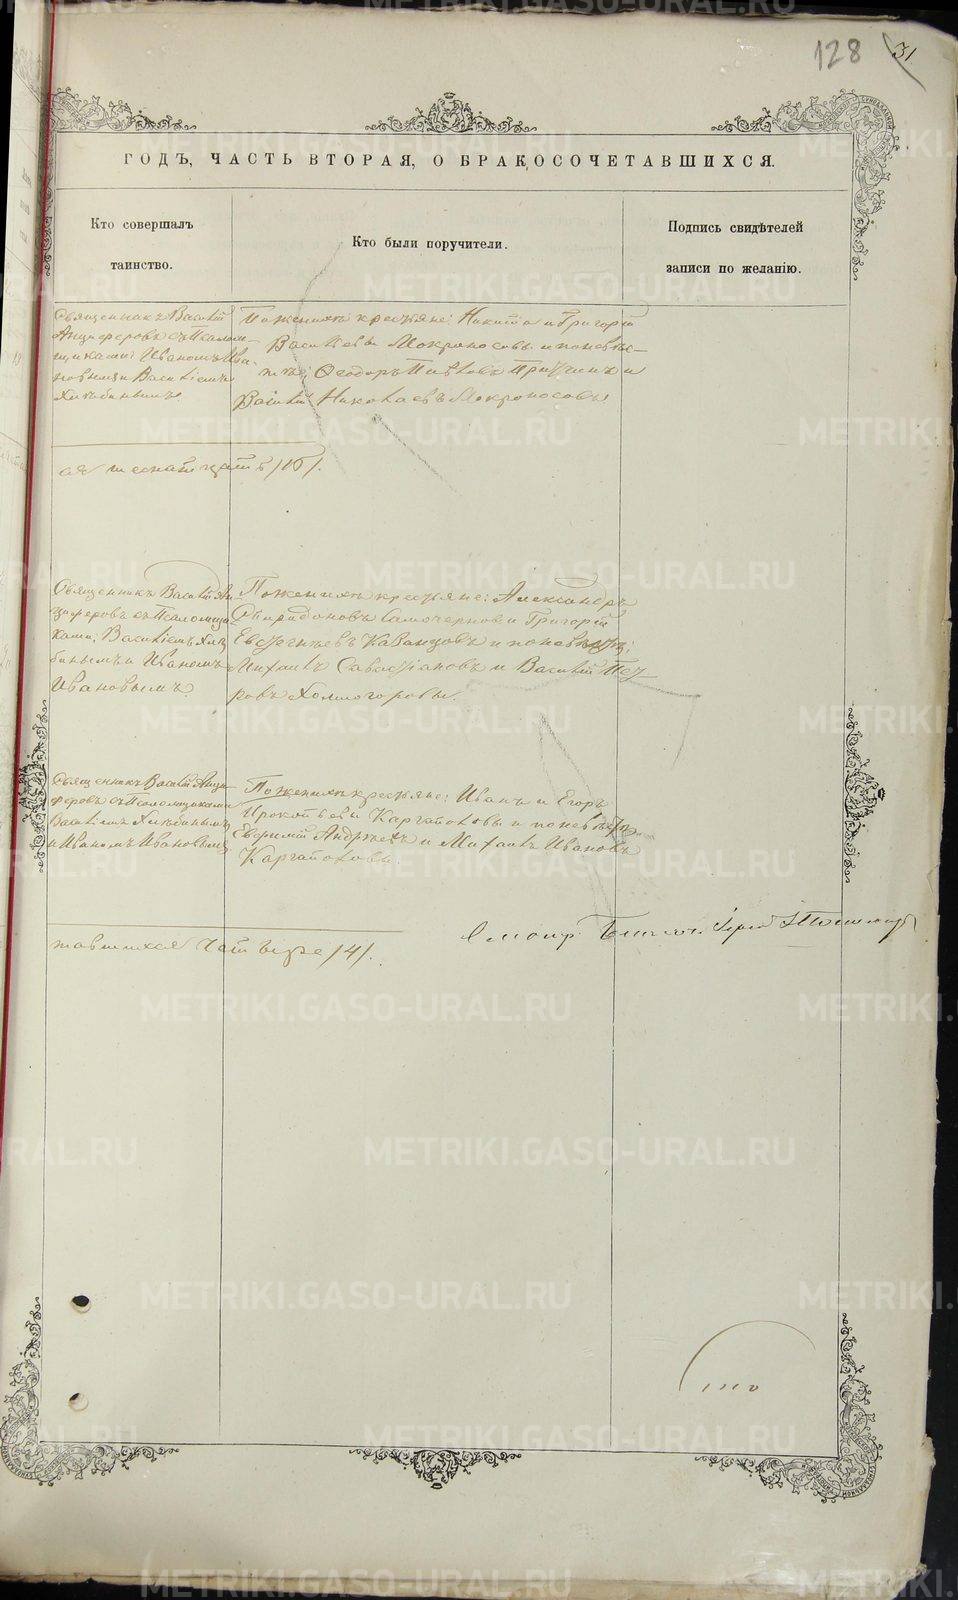 128 31.
ГОДЪ, ЧАСТЬ ВТОРАЯ, О БРАКОСОЧЕТАВШИХСЯ.
Кто совершалъ
таинство.
Кто были поручители.
Подпись свидѣтелей
записи по желанію.
Священникъ Василій
Анциферовъ съ Псалом-
щиками: Иваномъ Ива-
новымъ и Василіемъ
Хлѣбинымъ
По женихѣ крестьяне: Никита и Григорій
Васильевы Мокроносовы и по невѣс-
тѣ: Ѳеодоръ Павловъ и
Василій Николаевъ Мокроносовы
/16/.
Священникъ Василій Ан-
циферовъ съ Псаломщи-
ками: Василіемъ Хлѣ-
бинымъ и Иваномъ
Ивановымъ.
По женихѣ крестьяне: Александръ
Спиридоновъ Самочерновъ и Григорій
и по невѣстѣ:
Михаилъ Савастіановъ и Василій Пет-
ровъ Холмогоровы.
Священникъ Василій Анци-
феровъ съ Псаломщиками
Василіемъ Хлѣбинымъ
и Иваномъ Ивановымъ
По женихѣ крестьяне: Иванъ и Егоръ
Прокопьевы Каргаполовы и по невѣстѣ
Евфимій Андреевъ и Михаилъ Ивановъ
Каргаполовы.
тавшихся четыре /4/.
METRIKI.GASO-URAL.RU